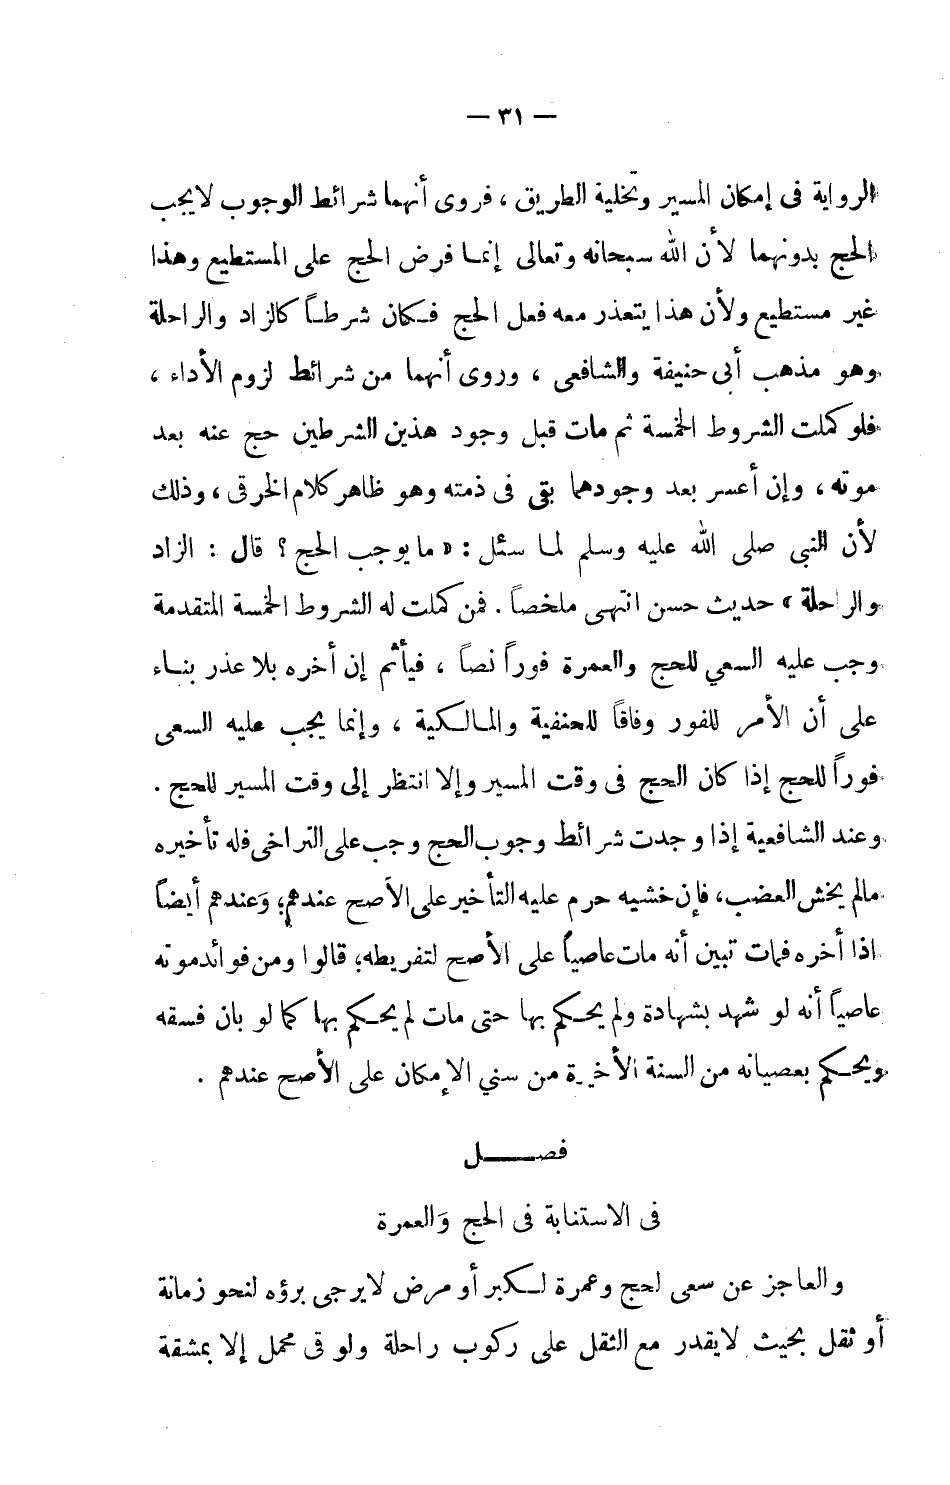 — ٣١ —
الرواية فى إمكان المسير وتخلية الطريق ، فروى أنهما شرائط الوجوب لايجب
الحج بدونهما لأن الله سبحانه وتعالى إنما فرض الحج على المستطيع وهذا
غير مستطيع ولأن هذا يتعذر معه فعل الحج فكان شرطاً كالزاد والراحلة
وهو مذهب أبى حنيفة والشافعى ، وروى أنهما من شرائط لزوم الأداء ،
فلو كملت الشروط الخمسة ثم مات قبل وجود هذين الشرطين حج عنه بعد
موته ، وإن أعسر بعد وجودهما بقى فى ذمته وهو ظاهر كلام الخرقى ، وذلك
لأن النبى صلى الله عليه وسلم لما سئل : « ما يوجب الحج ؟ قال : الزاد
والراحلة » حديث حسن انتهى ملخصاً . فمن كملت له الشروط الخمسة المتقدمة
وجب عليه السعي للحج والعمرة فوراً نصاً ، فيأثم إن أخره بلا عذر بناء
على أن الأمر للفور وفاقاً للحنفية والمالكية ، وإنما يجب عليه السعى
فوراً للحج إذا كان الحج فى وقت المسير وإلا انتظر إلى وقت المسير للحج .
وعند الشافعية إذا وجدت شرائط وجوب الحج وجب على التراخى فله تأخيره
مالم يخش العضب، فإن خشيه حرم عليه التأخير على الأصح عندهم؛ وَعندهم أيضاً
اذا أخره فمات تبين أنه مات عاصياً على الأصح لتفريطه؛ قالوا ومن فوائد موته
عاصياً أنه لو شهد بشهادة ولم يحكم بها حتى مات لم يحكم بها كما لو بان فسقه
ويحكم بعصيانه من السنة الأخيرة من سني الإمكان على الأصح عندهم .
فصل
فى الاستنابة فى الحج وَالعمرة
والعاجز عن سعى لحج وعمرة لكبر أو مرض لايرجى برؤه لنحو زمانة
أو ثقل بحيث لايقدر مع الثقل على ركوب راحلة ولو فى محمل إلا بمشقة